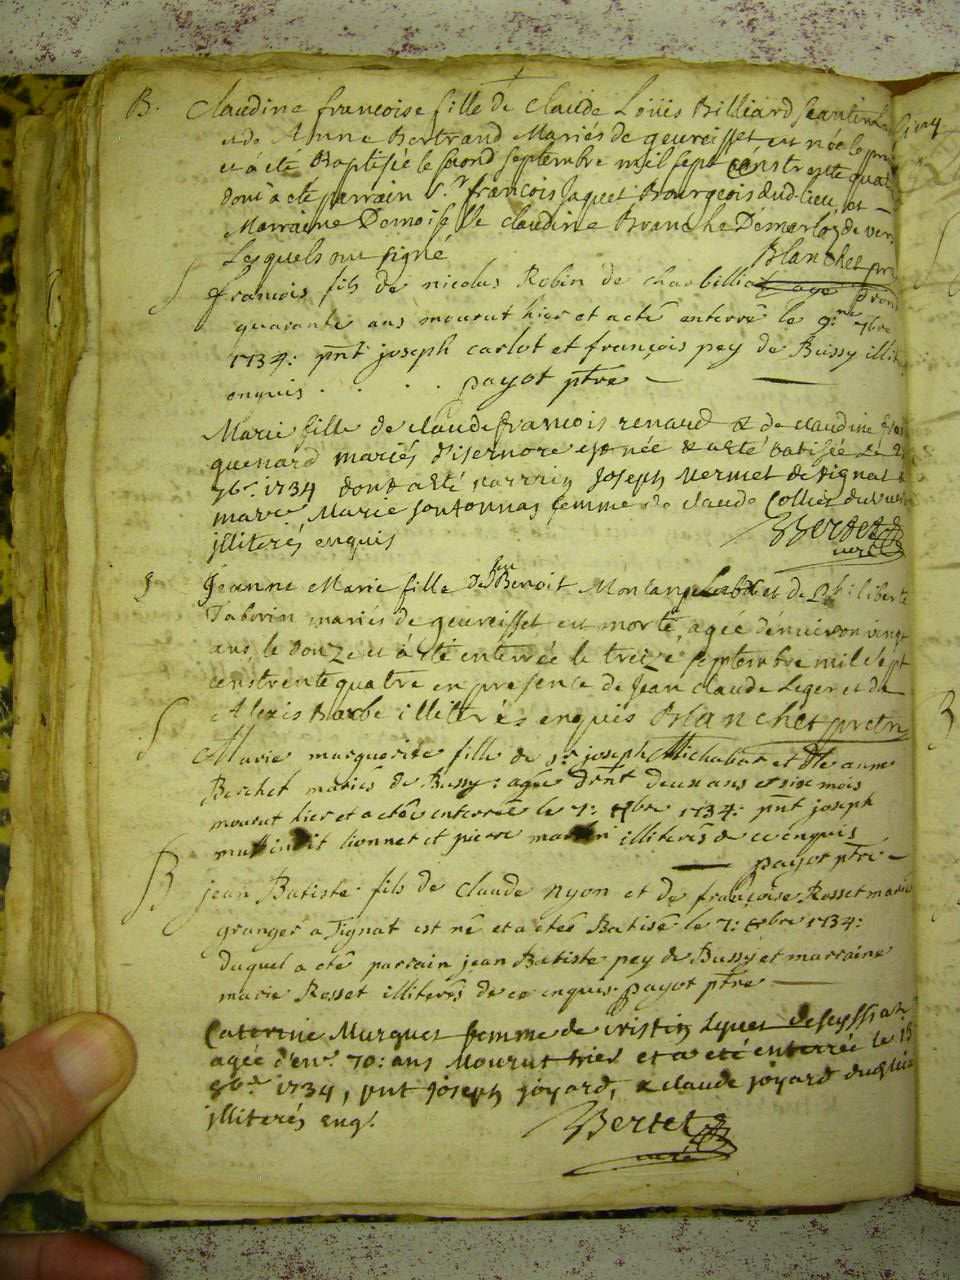 B. Claudine francoise fille de Claude Loüis Billiard
et de Anne Bertrand Mariés de geureisset est née le pr
et à été Baptisée le second septembre mil sept cens trente quat
dont à été parrain S.r françois Jaquet Bourgeois dud. lieu, et
Marraine Demoiselle Claudine Branche Demarloz de
Lesquels ont signé Blanchet pr
francois fils de nicolas Robin de charbillia age dron
quarante ans mourut hier et a eté enterré le 9.me 7bre
1734: pñt joseph carlot et françois pey de Bussy illit
enquis . . . payot ptre
Marie fille de claude francois renaud & de claudine
quenard mariés disernore est née & a eté batisée le
7b.r 1734 dont a eté parrin Joseph Mermet de tignat &
marr.e Marie fontonnas femme de claude Collet du
illiterés enquis Bertet
curé
§ Jeanne Marie fille De feu Benoit Montange et de Philiberte
Taborin mariés de geureisset est morte, agée d'enuiron vingt
ans, le douze et à été enterrée le treize septembre mil sept
cens trente quatre en presence de Jean Claude Leger et de
Alexis Barbe illiterés enquis Blanchet pretre
Marie marguerite fille de s.r joseph Michabat et dlle anne
Berchet mariés de Bussy: agee dront deux ans et six mois
mourut hier et a eté enterrée le 7: 8bre 1734: pñt joseph
lionnet et pierre martin illiterés de ce enquis
payot ptre
B jean Batiste fils de claude nyon et de françoise Rosset mariés
granger a Tignat est né et a eté Batisé le 7: 8bre 1734:
duquel a eté parrain jean Batiste pey de Bussy et marraine
marie Rosset illiterés de ce enquis payot ptre
Caterine Murques femme de cristin Lyuet deseyssiat
agée d'en.r 70: ans Mourut hier et a eté enterrée le 15
8b.re 1734, pnt Joseph joyard, & claude joyard dud. lieu
illiterés enq.s
Bertet
curé